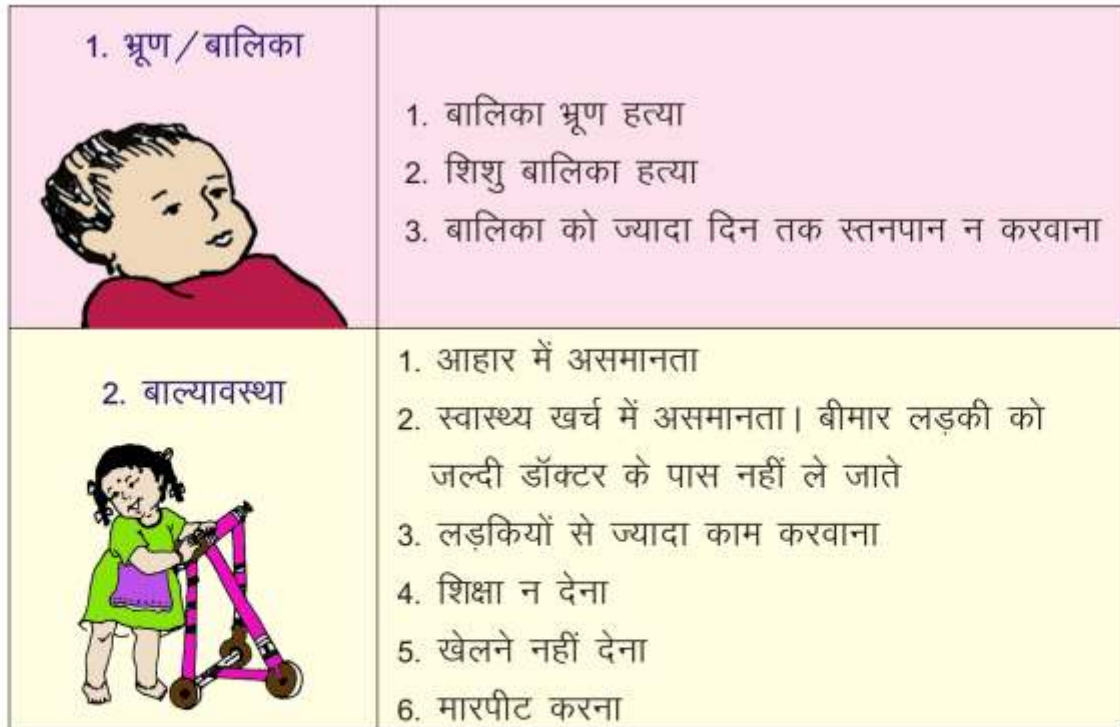 1. भ्रूण/बालिका
1. बालिका भ्रूण हत्या
2. शिशु बालिका हत्या
3. बालिका को ज्यादा दिन तक स्तनपान न करवाना
2. बाल्यावस्था
1. आहार में असमानता
2. स्वास्थ्य खर्च में असमानता। बीमार लड़की को
जल्दी डॉक्टर के पास नहीं ले जाते
3. लड़कियों से ज्यादा काम करवाना
4. शिक्षा न देना
5. खेलने नहीं देना
6. मारपीट करना